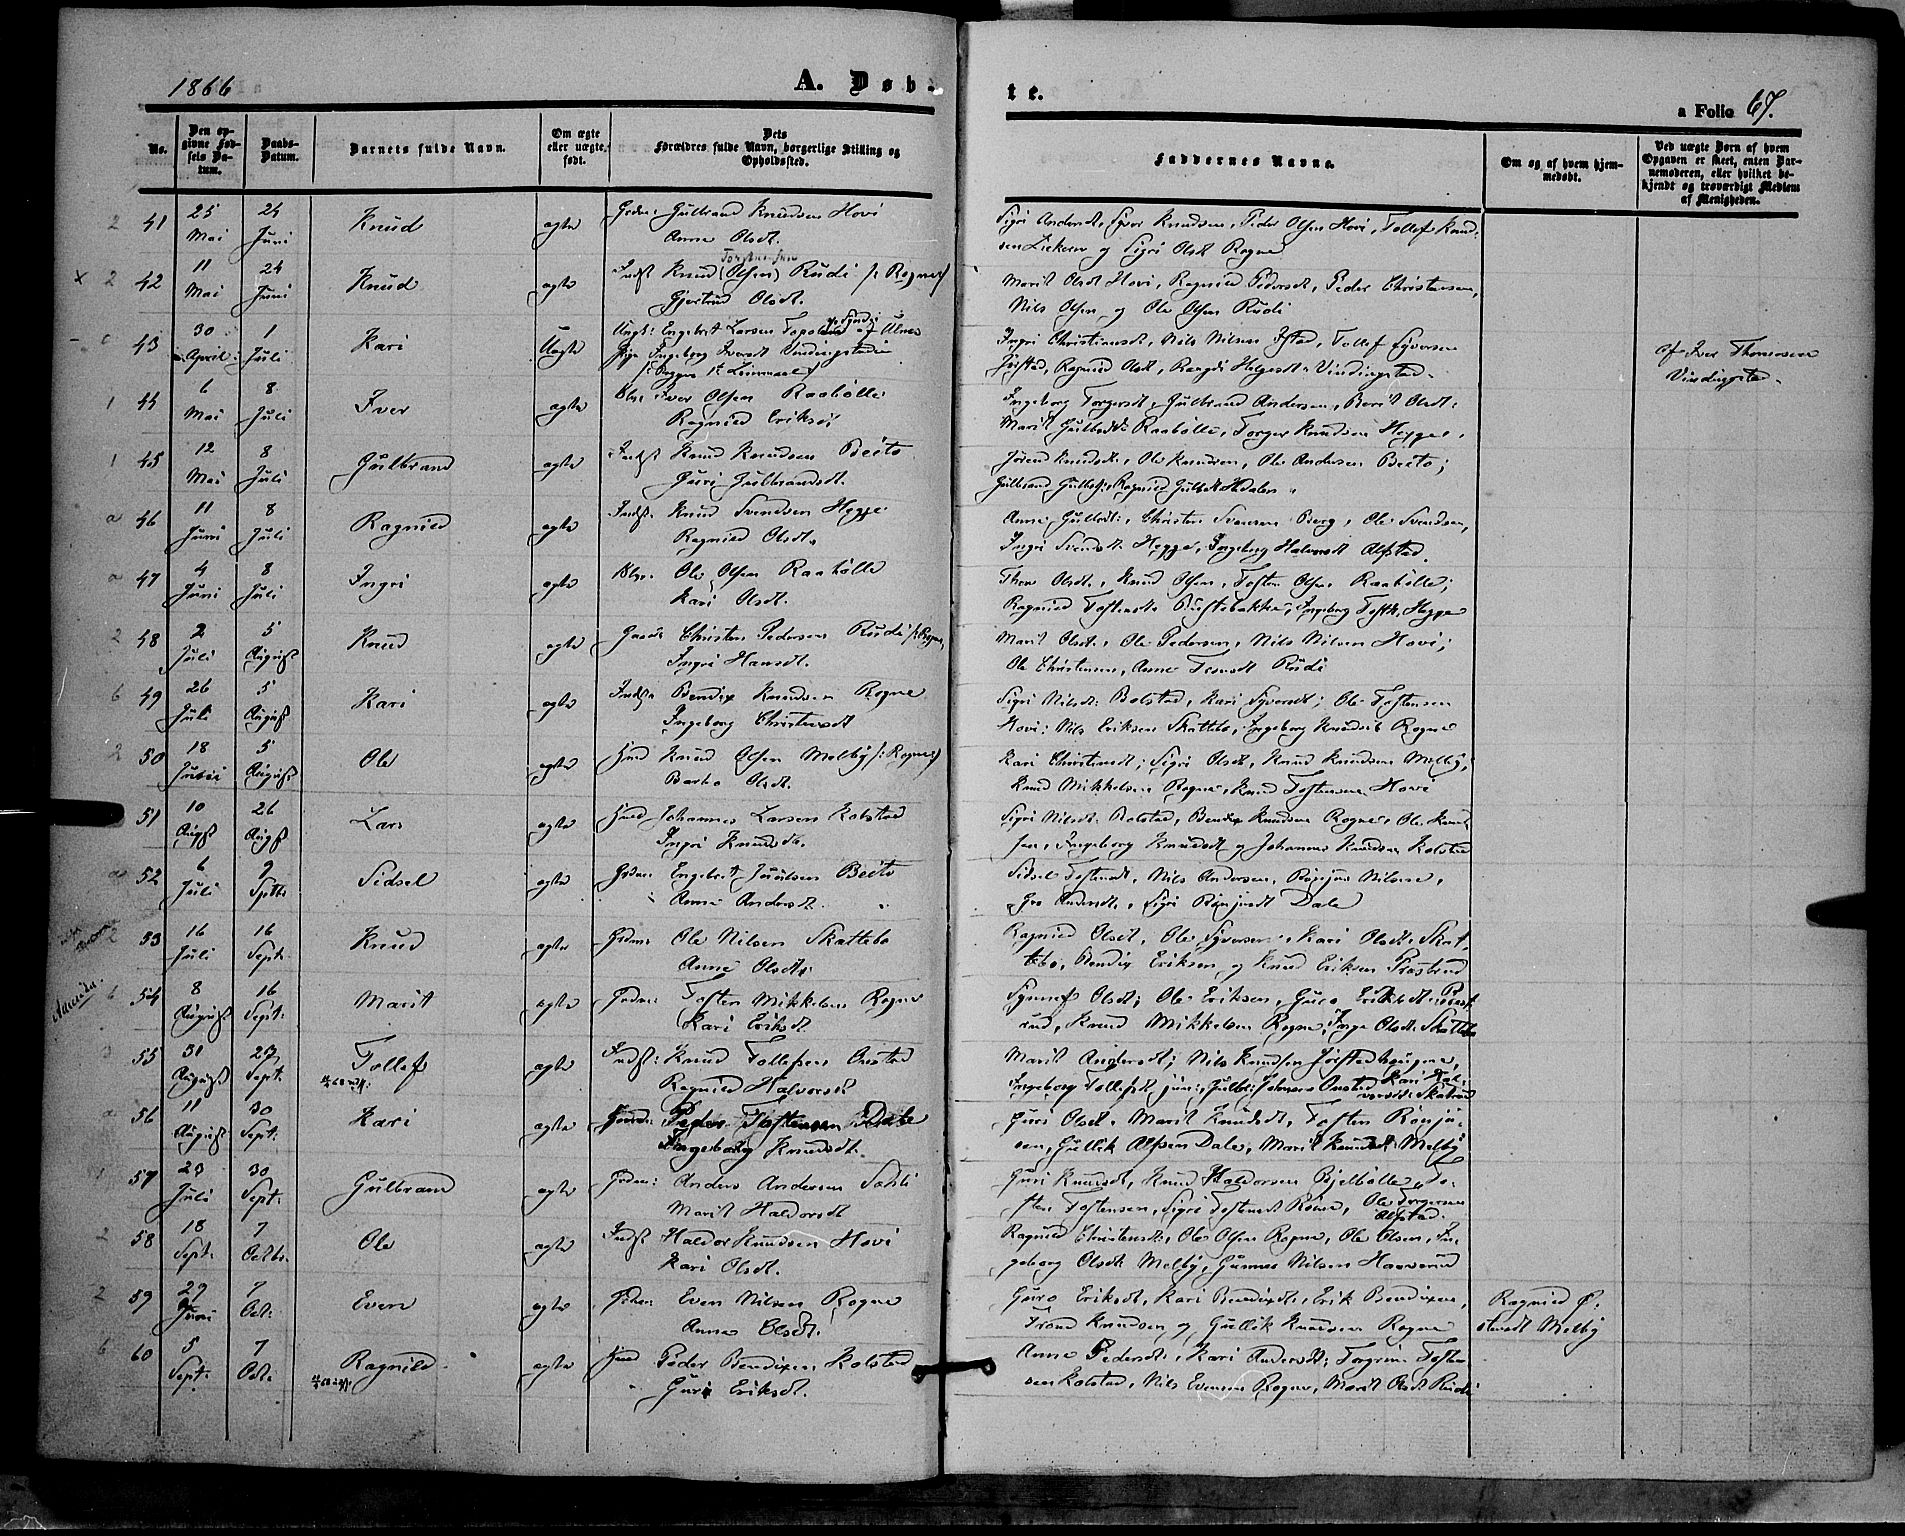 1866 A. Døb- te. a Folio 67.
No. Den opgivne Fødsels Datum. Daabs-Datum. Barnets fulde Navn. Om ægte eller uægte født. Dets Forældres fulde Navn, borgerlige Stilling og Opholdssted. Faddernes Navne. Om og af hvem hjemmedøbt. Ved uægte Børn af hvem Opgaven er skeet, enten Barnemoderen, eller hvilket bekjendt og troværdigt Medlem af Menigheden.
2 41 25 Mai 24 Juni Knud ægte Gulbrand Knudsen Hovi
Anne Olsdt.
Sigri Andersdt, Syver Knudsen, Peder Olsen Hovi, Tollef Knud-
sen og Sigri Olsdt Rogne
x 2 42 11 Mai 24 Juni Knud ægte Indst Knud (Olsen) Rudi /: Rogne :/
Gjertrud Olsdt.
Marit Olsdt Hovi, Ragnild Pedersdt, Peder Christensen,
Nils Olsen og Ole Olsen Rudi
43 30 April 1 Juli Kari Uægte Ungk: Engebret Larsen
Pige Ingeborg Iversdt Vindingstad
Ingri Christiansdt, Nils Nilsen, Tollef Syversen
Ragnild Olsdt, Helgesdt Vindingstad.
af Iver Thomasen
Vindingstad.
1 44 6 Mai 8 Juli Iver ægte Iver Olsen Raabølle
Ragnild Eriksdt
Ingeborg Torgersdt, Gulbrand Andersen, Berit Olsdt,
Marit Gulbrsdt Raabølle, Torger Knudsen Hegge.
1 45 12 Mai 8 Juli Gulbrand ægte Indst Knud Knudsen Beito
Guri Gulbrandsdt.
Jørend Knudsdt, Ole Knudsen, Ole Andersen Beito;
a 46 11 Juni 8 Juli Ragnild ægte Indst. Knud Svendsen Hegge
Ragnild Olsdt.
Anne Gulbrsdt, Christen Svensen Berg, Ole Svendsen,
Ingri Svendsdt Hegge, Ingeborg Halvorsdt Alfstad.
a 47 4 Juni 8 Juli Ingri ægte Ole Olsen Raabølle
Kari Olsdt.
Thore Olsdt, Knud Olsen, Tosten Olsen Raabølle;
Ragnild Tostensdt, Ingeborg Tostdt. Hegge
2 48 2 Juli 5 August Knud ægte Christen Pedersen Rudi /: Rogne
Ingri Hansdt.
Marit Olsdt, Ole Pedersen, Nils Nilsen Hovi;
Ole Christensen, Anne Rudi
6 49 26 Juli 5 August Kari ægte Indst Bendix Knudsen Rogne
Ingeborg Christensdt
Sigri Nilsdt Bolstad, Kari Syversdt; Ole Tostensen
Hovi; Nils Eriksen Skattebo, Ingeborg Knudsdt Rogne
2 50 18 Juli 5 August Ole ægte Knud Olsen Melby /: Rogne :/
Barbo Olsdt.
Kari Christensdt; Sigri Olsdt, Knud Knudsen Melby,
Knud Mikkelsen Rogne, Knud Tostensen Hovi
51 10 Augst 26 Augst Lars ægte Johannes Larsen Kolstad
Ingri Knudsdt.
Sigri Nilsdt Bolstad, Bendix Knudsen Rogne, Ole Knud-
sen, Ingeborg Knudsdt og Johannes Knudsen Kolstad
a 52 6 Juli 9 Septb Sidsel ægte Engebret Juulsen Beito
Anne Andersdt.
Sidsel Tostensdt, Nils Andersen, Rønjus Nilsen,
Gro Andersdt, Sigri Rønjusdt Dale
2 53 16 Juli 16 Sept. Knud ægte Ole Nilsen Skattebo
Anne Olsdt.
Ragnild Olsdt, Ole Syversen, Kari Olsdt Skat-
tebo, Bendix Eriksen og Knud Eriksen
Amerika.
6 54 8 August 16 Sept: Marit ægte Tosten Mikkelsen Rogne
Kari Eriksdt.
Synnef Olsdt; Ole Eriksen, Guro Eriksdt
rud, Knud Mikkelsen Rogne, Inge Olsdt Skattebo
3 55 31 August 23 Sept. Tollef ægte Indst: Knud Tollefsen Onstad
Ragnild Halvorsdt
Marit Andersdt; Nils Knudsen Jørstad
Ingeborg Tollefsdt jun:, Onstad, Kari Hal-
vorsdt
a 56 11 August 30 Sept: Kari ægte Peder Tostensen Dale
Ingeborg Knudsdt.
Guri Olsdt, Marit Knudsdt, Tosten Rønju-
sen, Gullik Alfsen Dale, Marit Knudsdt Melby
1 57 23 Juli 30 Sept: Gulbrand ægte Anders Andersen
Marit Haldorsdt
Guri Knudsdt, Knud Haldorsen Bjelbølle, To-
sten Tostensen, Sigri Tostensdt, Ole Torgersen
Alfstad.
2 58 18 Sept: 7 Octbr. Ole ægte Indst Haldor Knudsen Hovi
Kari Olsdt.
Ragnild Christensdt, Ole Olsen Rogne, Ole Olsen, In-
geborg Olsdt Melby, Gunner Nilsen
2 59 29 Juni 7 Oct: Even ægte Even Nilsen Rogne
Anne Olsdt.
Guro Eriksdt, Kari Bendixdt, Erik Bendixen,
Trond Knudsen og Gullik Knudsen Rogne
Ragnild Ø-
stensdt Melby
6 60 5 Sept: 7 Oct. Ragnild ægte Peder Bendixen Kolstad
Guri Eriksdt.
Anne Pedersdt, Kari Andersdt; Torgrim Tosten-
sen Kolstad, Nils Evensen Rogne, Marit Olsdt Rudi